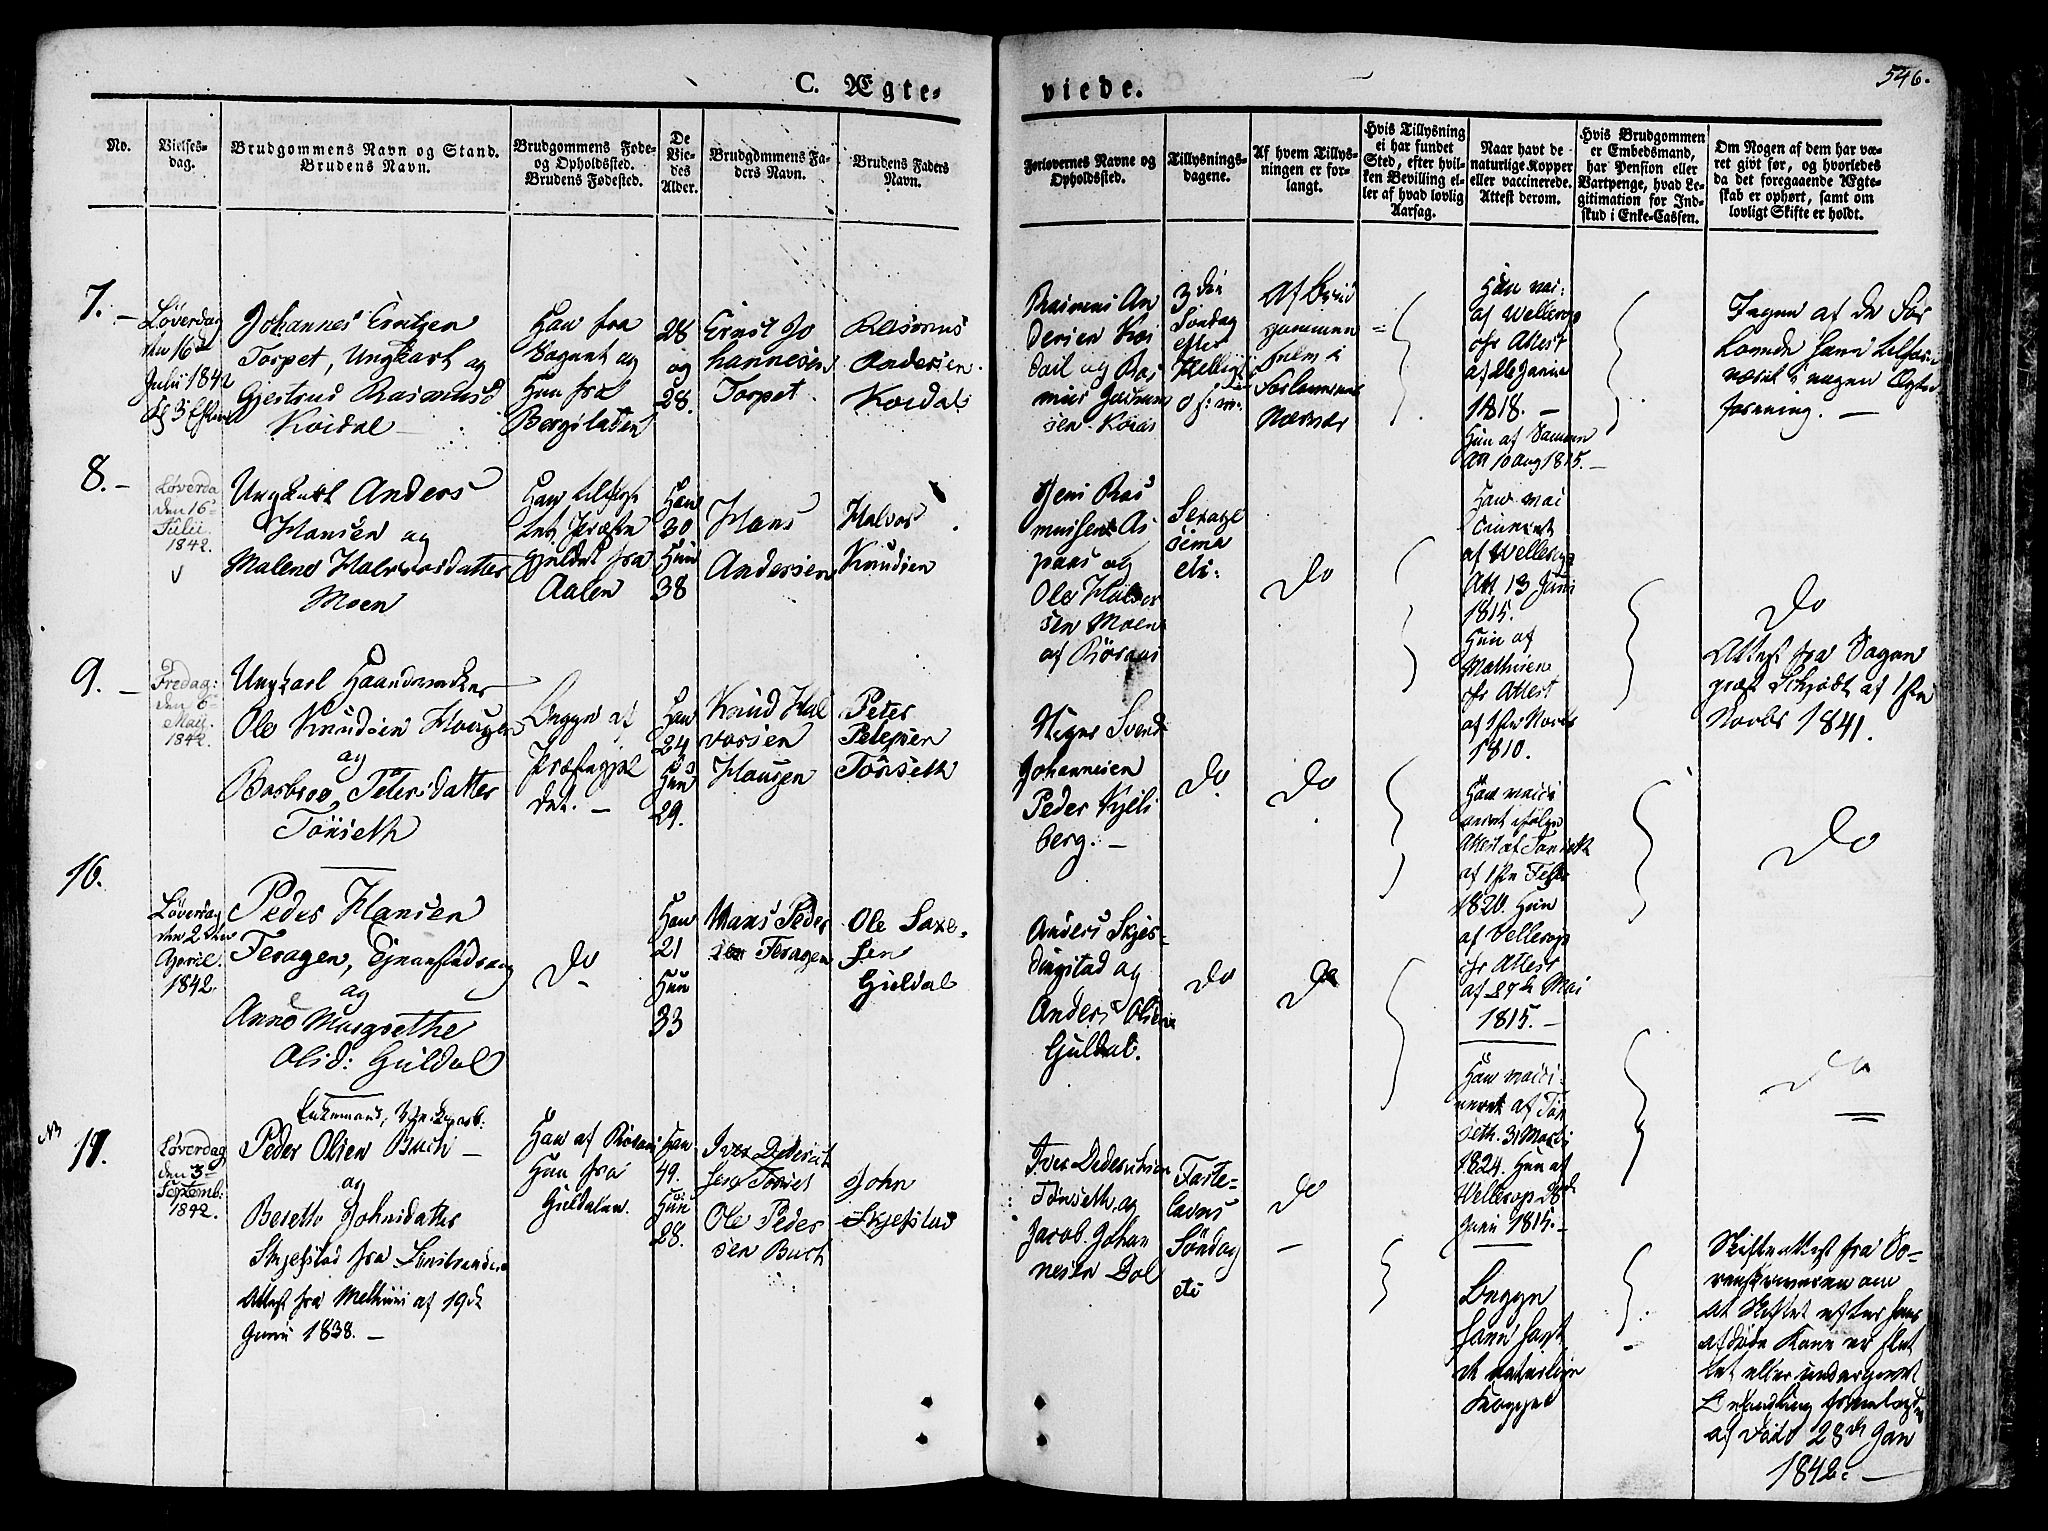 C. Ægte-
viede.
546.
No.
Vielses-
dag.
Brudgommens Navn og Stand.
Brudens Navn.
Brudgommens Føde-
og Opholdssted.
Brudens Fødested.
De
Vie-
des
Alder.
Brudgommens Fa-
ders Navn.
Brudens Faders
Navn.
Forlovernes Navne og
Opholdssted.
Tillysnings-
dagene.
Af hvem Tillys-
ningen er for-
langt.
Hvis Tillysning
ei har fundet
Sted, efter hvil-
ken Bevilling el-
ler af hvad lovlig
Aarsag.
Naar havt de
naturlige Kopper
eller vaccinerede.
Attest derom.
Hvis Brudgommen
er Embedsmand,
har Pension eller
Vartpenge, hvad Le-
gitimation for Ind-
skud i Enke-Cassen.
Om Nogen af dem har væ-
ret gift før, og hvorledes
da det foregaaende Ægte-
skab er ophørt, samt om
lovligt Skifte er holdt.
7.
Løverdag
den 16de
Julii 1842
Johannes Erntsen
Torpet, Ungkarl og
Gjertrud Rasmusd
Koidal
Han fra
og
Hun fra
Bergstaden
28
og
28.
Ernst Jo
hannesen
Torpet.
Rasmus
Andersen
Koidal
Rasmus An
dersen Koi
dal og Ras
mus
sen
3die
Søndag
efter
Af Brud
gommen
i
Forlovernes
Nærvær
af Wellerop
Attest
1818.
Hun af
10 Aug 1815.
Ingen af de For
lovede
været i nogen Ægte
forening.
8.
Løverda
den 16de
Julii
1842.
Ungkarl Anders
Hansen og
Malene Halvorsdatter
Moen
Han
Præste
gjeldet fra
Aalen
Han
30
Hun
38
Hans
Andersen
Halvor
Knudsen
Jens Ras
mussen As
paas og
Ole Halvor
sen Moen
af Röraas
Sexage
sima
etc:
Do
af Wellerop
Att 13 Juni
1815.
Hun af
Mathisen
Attest
af 1ste Novbr
1810.
Do
Attest fra Sogne
præst Schjødt af 1ste
Novbr 1841.
9.
Fredag:
den 6te
Maii.
1842.
Ungkarl Haandværker
Ole Knudsen Hougen
og
Barbroe Petersdatter
Tönseth
Begge af
Præstegjel
det.
Han
24
Hun
29.
Knud Hal
vorsen
Hougen
Peter
Petersen
Tönseth
Svend
Johannesen
Peder Kjels
berg.
Do
Do
Han vacci
neret ifølge
Attest af Tönseth
af 1ste Febr
1820. Hun
af Vellerop
Attest
af 27de Mai
1815.
Do
10.
Løverdag
den 2den
April.
1842.
Peder Hansen
Feragen,
og
Anne Margrethe
Olsd: Guldal
Do
Han
21
Hun
33
Hans Peder
sen Feragen
Ole Saxe
sen
Guldal
Anders Skjes-
dingstad og
Anders Olsen
Guldal.
Do
Do
Han vacci
neret af Tön
seth. 31 Marti
1824. Hun af
Wellerop 28de
Juni 1815.
Do
NB
11.
Løverdag
den 3de
Septemb:
1842.
Enkemand,
Peder Olsen Buch
og
Berette Johnsdatter
Skjefstad fra
Attest fra Melhuus af 19de
Junii 1838.
Han af Röraas
Hun fra
Guldalen.
Han
49.
Hun
28.
Iver Dederich
sen Tönset
Ole Peder
sen Buch
John
Skjefstad
Iver Dederichsen
Tönseth og
Jacob Johan
nesen Dol
Faste-
lavns
Søndag
etc
Do
Begge
have havt
de naturlige
Kopper
Skifteattest fra So-
renskriveren om
at Skiftet efter hans
afdøde Kone er slut
tet eller undergivet
Behandling fremlagdes
af Dato 28de Jan
1842.